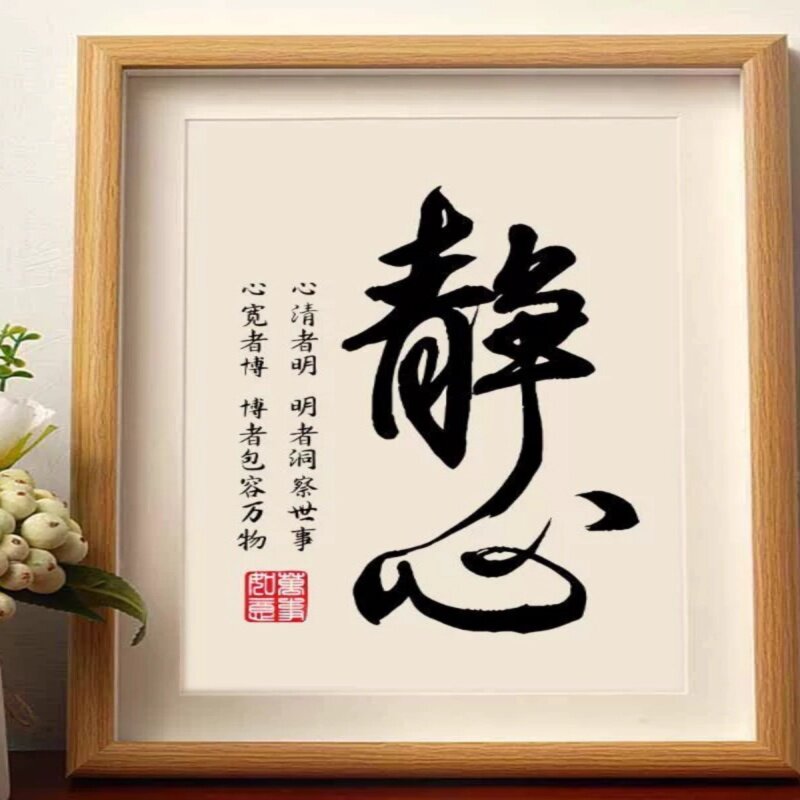 静心
心清者明 明者洞察世事
心宽者博 博者包容万物
萬事
如意